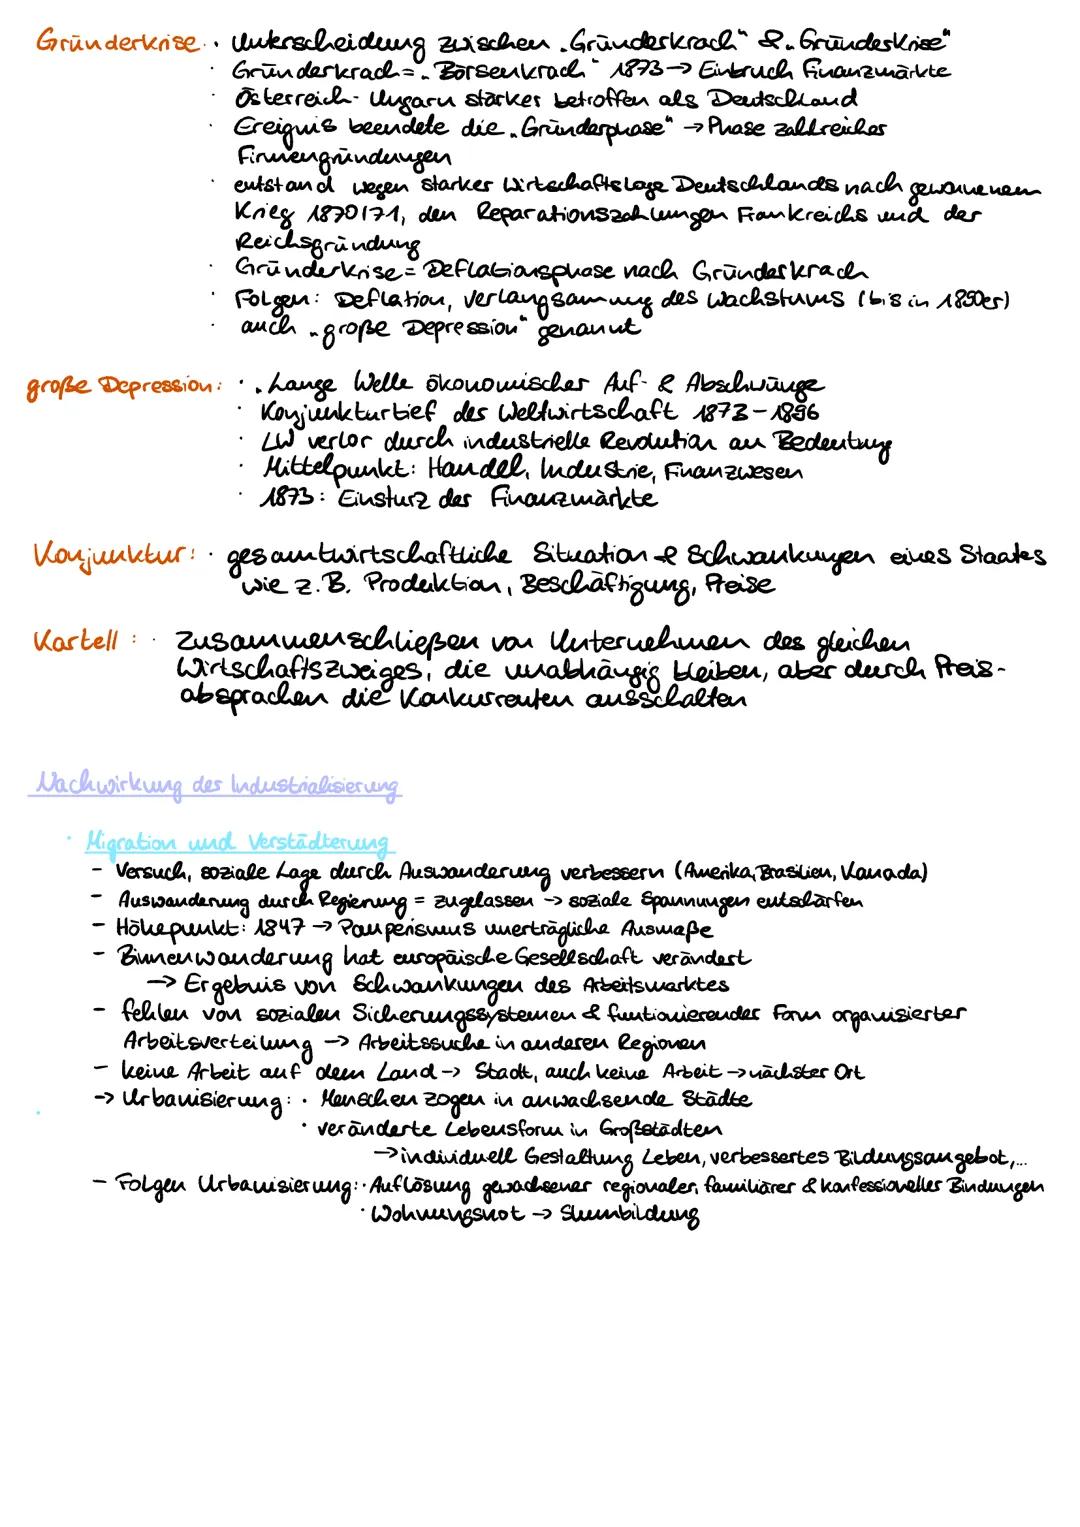 Gründerkrise: · Unterscheidung zwischen „Gründerkrach" & „Gründerkrise"
· Gründerkrach = „Börsenkrach" 1873 → Einbruch Finanzmärkte
· Österreich-Ungarn stärker betroffen als Deutschland
· Ereignis beendete die „Gründerphase" → Phase zahlreicher
Firmengründungen
· entstand wegen starker Wirtschaftslage Deutschlands nach gewonnenem
Krieg 1870/71, den Reparationszahlungen Frankreichs und der
Reichsgründung
· Gründerkrise = Deflationsphase nach Gründerkrach
· Folgen: Deflation, Verlangsamung des Wachstums (bis in 1890er)
· auch „große Depression" genannt
große Depression: · „Lange Welle ökonomischer Auf- & Abschwünge
· Konjunkturtief der Weltwirtschaft 1873-1896
· LW verlor durch industrielle Revolution an Bedeutung
· Mittelpunkt: Handel, Industrie, Finanzwesen
· 1873: Einsturz der Finanzmärkte
Konjunktur: · gesamtwirtschaftliche Situation & Schwankungen eines Staates
wie z.B. Produktion, Beschäftigung, Preise
Kartell: · Zusammenschließen von Unternehmen des gleichen
Wirtschaftszweiges, die unabhängig bleiben, aber durch Preis-
absprachen die Konkurrenten ausschalten
Nachwirkung der Industrialisierung
· Migration und Verstädterung
- Versuch, soziale Lage durch Auswanderung verbessern (Amerika, Brasilien, Kanada)
- Auswanderung durch Regierung = zugelassen → soziale Spannungen entschärfen
- Höhepunkt: 1847 → Pauperismus unerträgliche Ausmaße
- Binnenwanderung hat europäische Gesellschaft verändert
→ Ergebnis von Schwankungen des Arbeitsmarktes
- fehlen von sozialen Sicherungssystemen & funtionierender Form organisierter
Arbeitsverteilung → Arbeitssuche in anderen Regionen
- keine Arbeit auf dem Land → Stadt, auch keine Arbeit → nächster Ort
→ Urbanisierung: · Menschen zogen in anwachsende Städte
· veränderte Lebensform in Großstädten
→ individuell Gestaltung Leben, verbessertes Bildungsangebot,...
- Folgen Urbanisierung: · Auflösung gewachsener regionaler, familiärer & konfessioneller Bindungen
· Wohnungsnot → Slumbildung